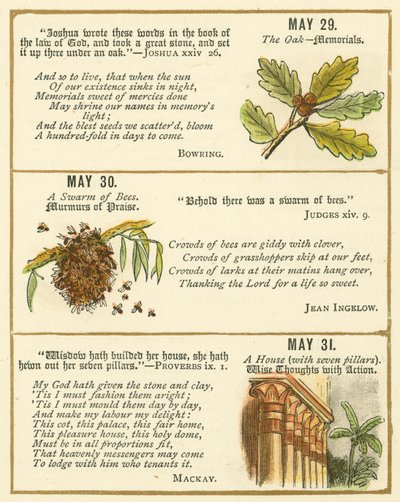 MAY 29.
The Oak—Memorials.
"Joshua wrote these words in the book of
the law of God, and took a great stone, and set
it up there under an oak."—JOSHUA xxiv 26.
And so to live, that when the sun
Of our existence sinks in night,
Memorials sweet of mercies done
May shrine our names in memory's
light;
And the blest seeds we scatter'd, bloom
A hundred-fold in days to come.
BOWRING.
MAY 30.
A Swarm of Bees.
Murmurs of Praise.
"Behold there was a swarm of bees."
JUDGES xiv. 9.
Crowds of bees are giddy with clover,
Crowds of grasshoppers skip at our feet,
Crowds of larks at their matins hang over,
Thanking the Lord for a life so sweet.
JEAN INGELOW.
MAY 31.
A House (with seven pillars).
Wise Thoughts with Action.
"Wisdow hath builded her house, she hath
hewn out her seven pillars."—PROVERBS ix. 1.
My God hath given the stone and clay,
'Tis I must fashion them aright;
'Tis I must mould them day by day,
And make my labour my delight:
This cot, this palace, this fair home,
This pleasure house, this holy dome,
Must be in all proportions fit,
That heavenly messengers may come
To lodge with him who tenants it.
MACKAY.